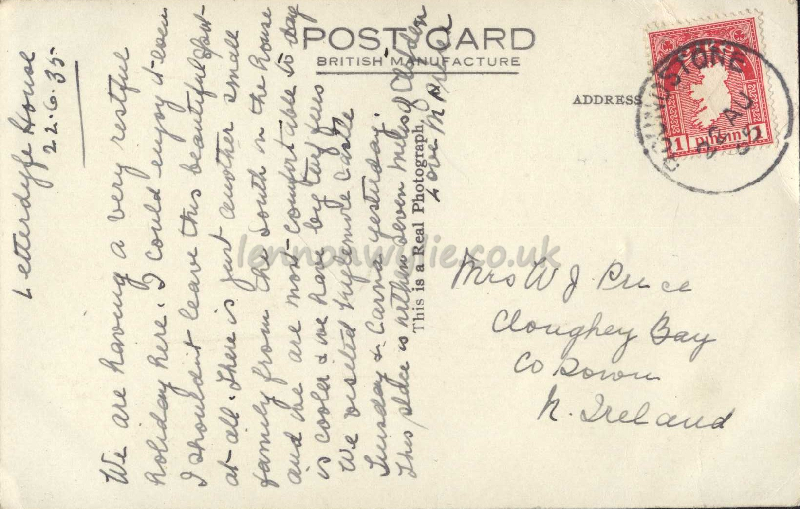 POST CARD
BRITISH MANUFACTURE
ADDRESS
This is a Real Photograph
Letterdyfe House
22.6.35
We are having a very restful
holiday here. I could enjoy it even
I shouldn't leave this beautiful spot
at all. There is just another small
family from the South in the house
and we are most comfortable. To day
is cooler & we have big turf fires
We visited Kylemore Castle
Tuesday & Carna yesterday.
This place is within seven miles of Clifden
Love M Price
Mrs W J Price
Cloughey Bay
Co Down
N. Ireland
1 pinginn 1
STONE
lennonwylie.co.uk